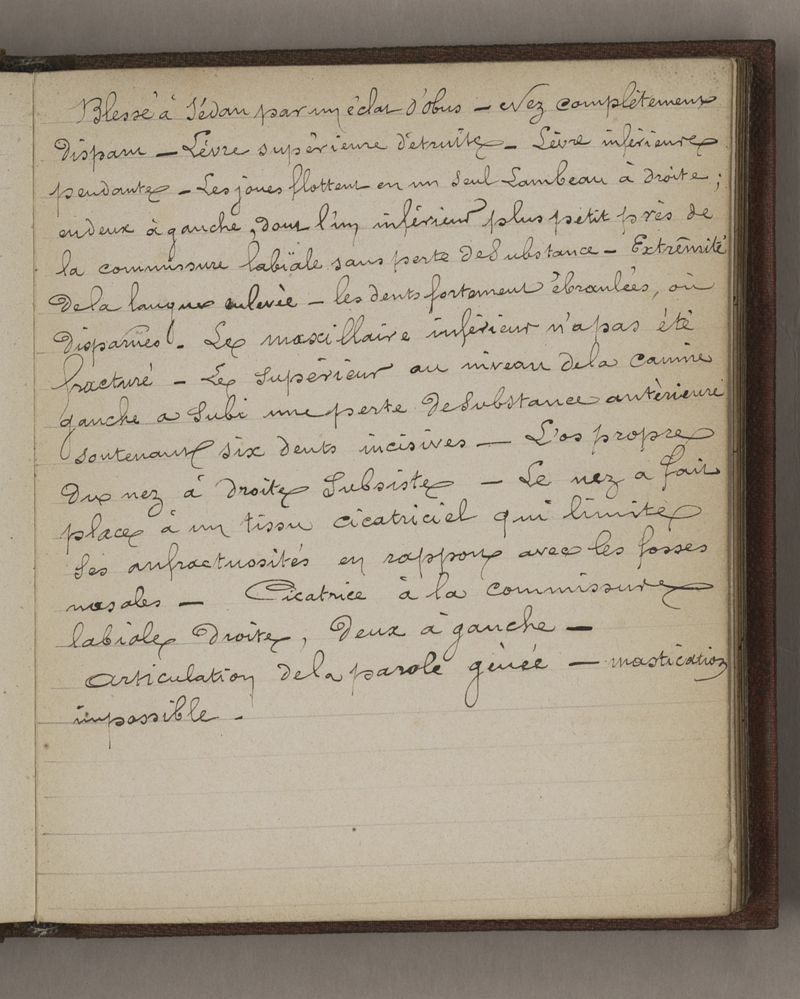 Blessé à Sédan par un éclat d'obus – Nez complètement
disparu – Lèvre supérieure détruite – Lèvre inférieure
pendante – Les joues flottent en un seul Lambeau à droite ;
en deux à gauche, dont l'un inférieur plus petit près de
la commissure labiale sans perte de Substance – Extrémité
de la langue enlevée – les dents fortement ébranlées, où
disparues. Le maxillaire inférieur n'a pas été
fracturé – Le Supérieur au niveau de la canine
gauche a Subi une perte de Substance antérieure
soutenant six dents incisives – L'os propre
du nez à droite Subsiste – Le nez a fait
place à un tissu cicatriciel qui limite
Ses anfractuosités en rapport avec les fosses
nasales – Cicatrice à la commissure
labiale Droite, Deux à gauche –
Articulation de la parole gênée – mastication
impossible.